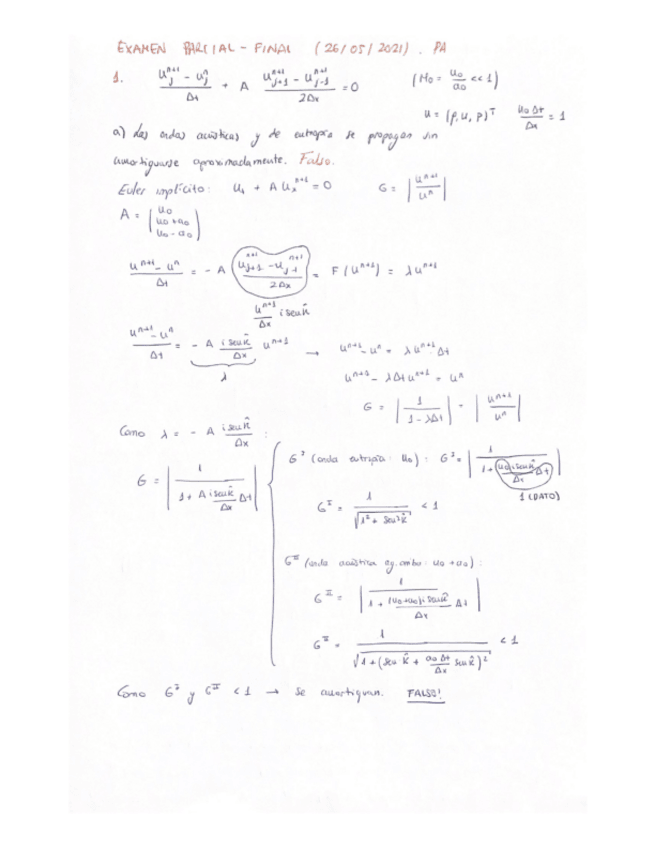 EXAMEN PARCIAL - FINAL (26/05/2021). PA
1. (u_j^{n+1} - u_j^n)/Δt + A (u_{j+1}^{n+1} - u_{j-1}^{n+1})/2Δx = 0 (M₀ = u₀/a₀ << 1)
u = (ρ, u, p)^T u₀Δt/Δx = 1
a) Las ondas acústicas y de entropía se propagan sin
amortiguarse aproximadamente. Falso.
Euler implícito: u_t + A u_x^{n+1} = 0 G = |u^{n+1}/u^n|
A = | u₀
u₀+a₀
u₀-a₀ |
(u^{n+1} - u^n)/Δt = - A (u_{j+1}^{n+1} - u_{j-1}^{n+1})/2Δx = F(u^{n+1}) = λu^{n+1}
u^{n+1}/Δx i sen k̂
(u^{n+1} - u^n)/Δt = - A (i sen k̂)/Δx u^{n+1} → u^{n+1} - u^n = λu^{n+1}·Δt
λ
u^{n+1} - λΔt u^{n+1} = u^n
G = |1/(1 - λΔt)| = |u^{n+1}/u^n|
Como λ = - A (i sen k̂)/Δx :
G = |1/(1 + A (i sen k̂)/Δx Δt)|
G^I (onda entropía: u₀): G^I = |1/(1 + (u₀ i sen k̂)/Δx Δt)|
1 (DATO)
G^I = 1/√(1² + sen²k̂) < 1
G^II (onda acústica ej. ambo: u₀+a₀):
G^II = |1/(1 + ((u₀+a₀) i sen k̂)/Δx Δt)|
G^II = 1/√(1 + (sen k̂ + a₀Δt/Δx sen k̂)²) < 1
Como G^I y G^II < 1 → se amortiguan. FALSO!